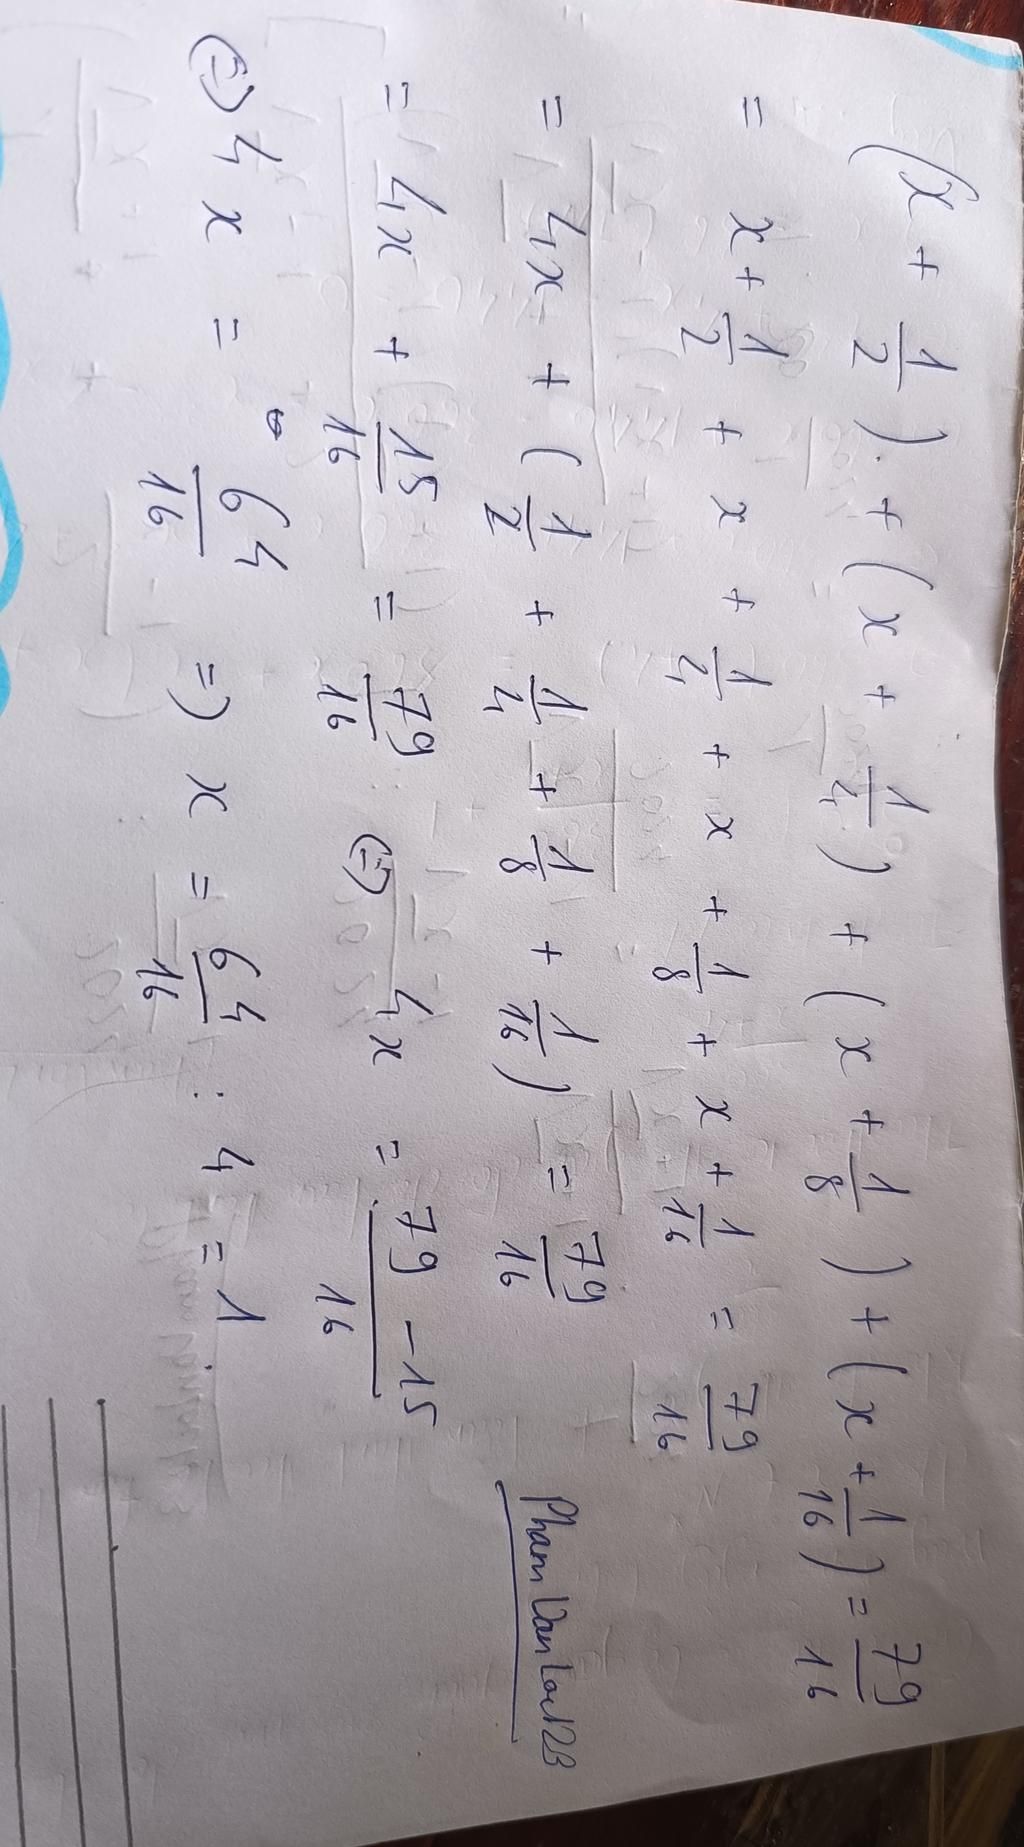 (x + 1/2) + (x + 1/4) + (x + 1/8) + (x + 1/16) = 79/16
= x + 1/2 + x + 1/4 + x + 1/8 + x + 1/16 = 79/16
= 4x + (1/2 + 1/4 + 1/8 + 1/16) = 79/16
= 4x + 15/16 = 79/16 (=) 4x = 79 - 15/16
(=) 4x = 64/16 =) x = 64/16 : 4 = 1
Pham Van Loc123